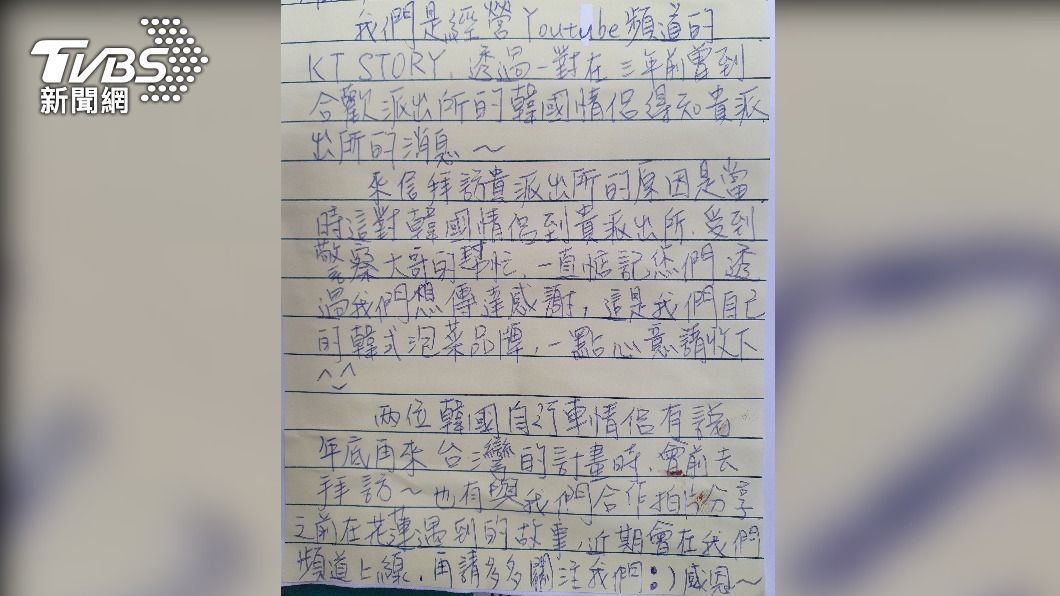 TVBS
新聞網
我們是經營Youtube頻道的
KT STORY, 透過一對在三年前曾到
合歡派出所的韓國情侶得知貴派
出所的消息～
來信拜訪貴派出所的原因是當
時這對韓國情侶到貴派出所,受到
警察大哥的幫忙,一直惦記您們透
過我們想傳達感謝,這是我們自己
的韓式泡菜品牌,一點心意請收下
^‿^
兩位韓國自行車情侶有說
年底再來台灣的計畫時,會前去
拜訪～也有與我們合作拍片分享
之前在花蓮遇到的故事,近期會在我們
頻道上線,再請多多關注我們:)感恩～